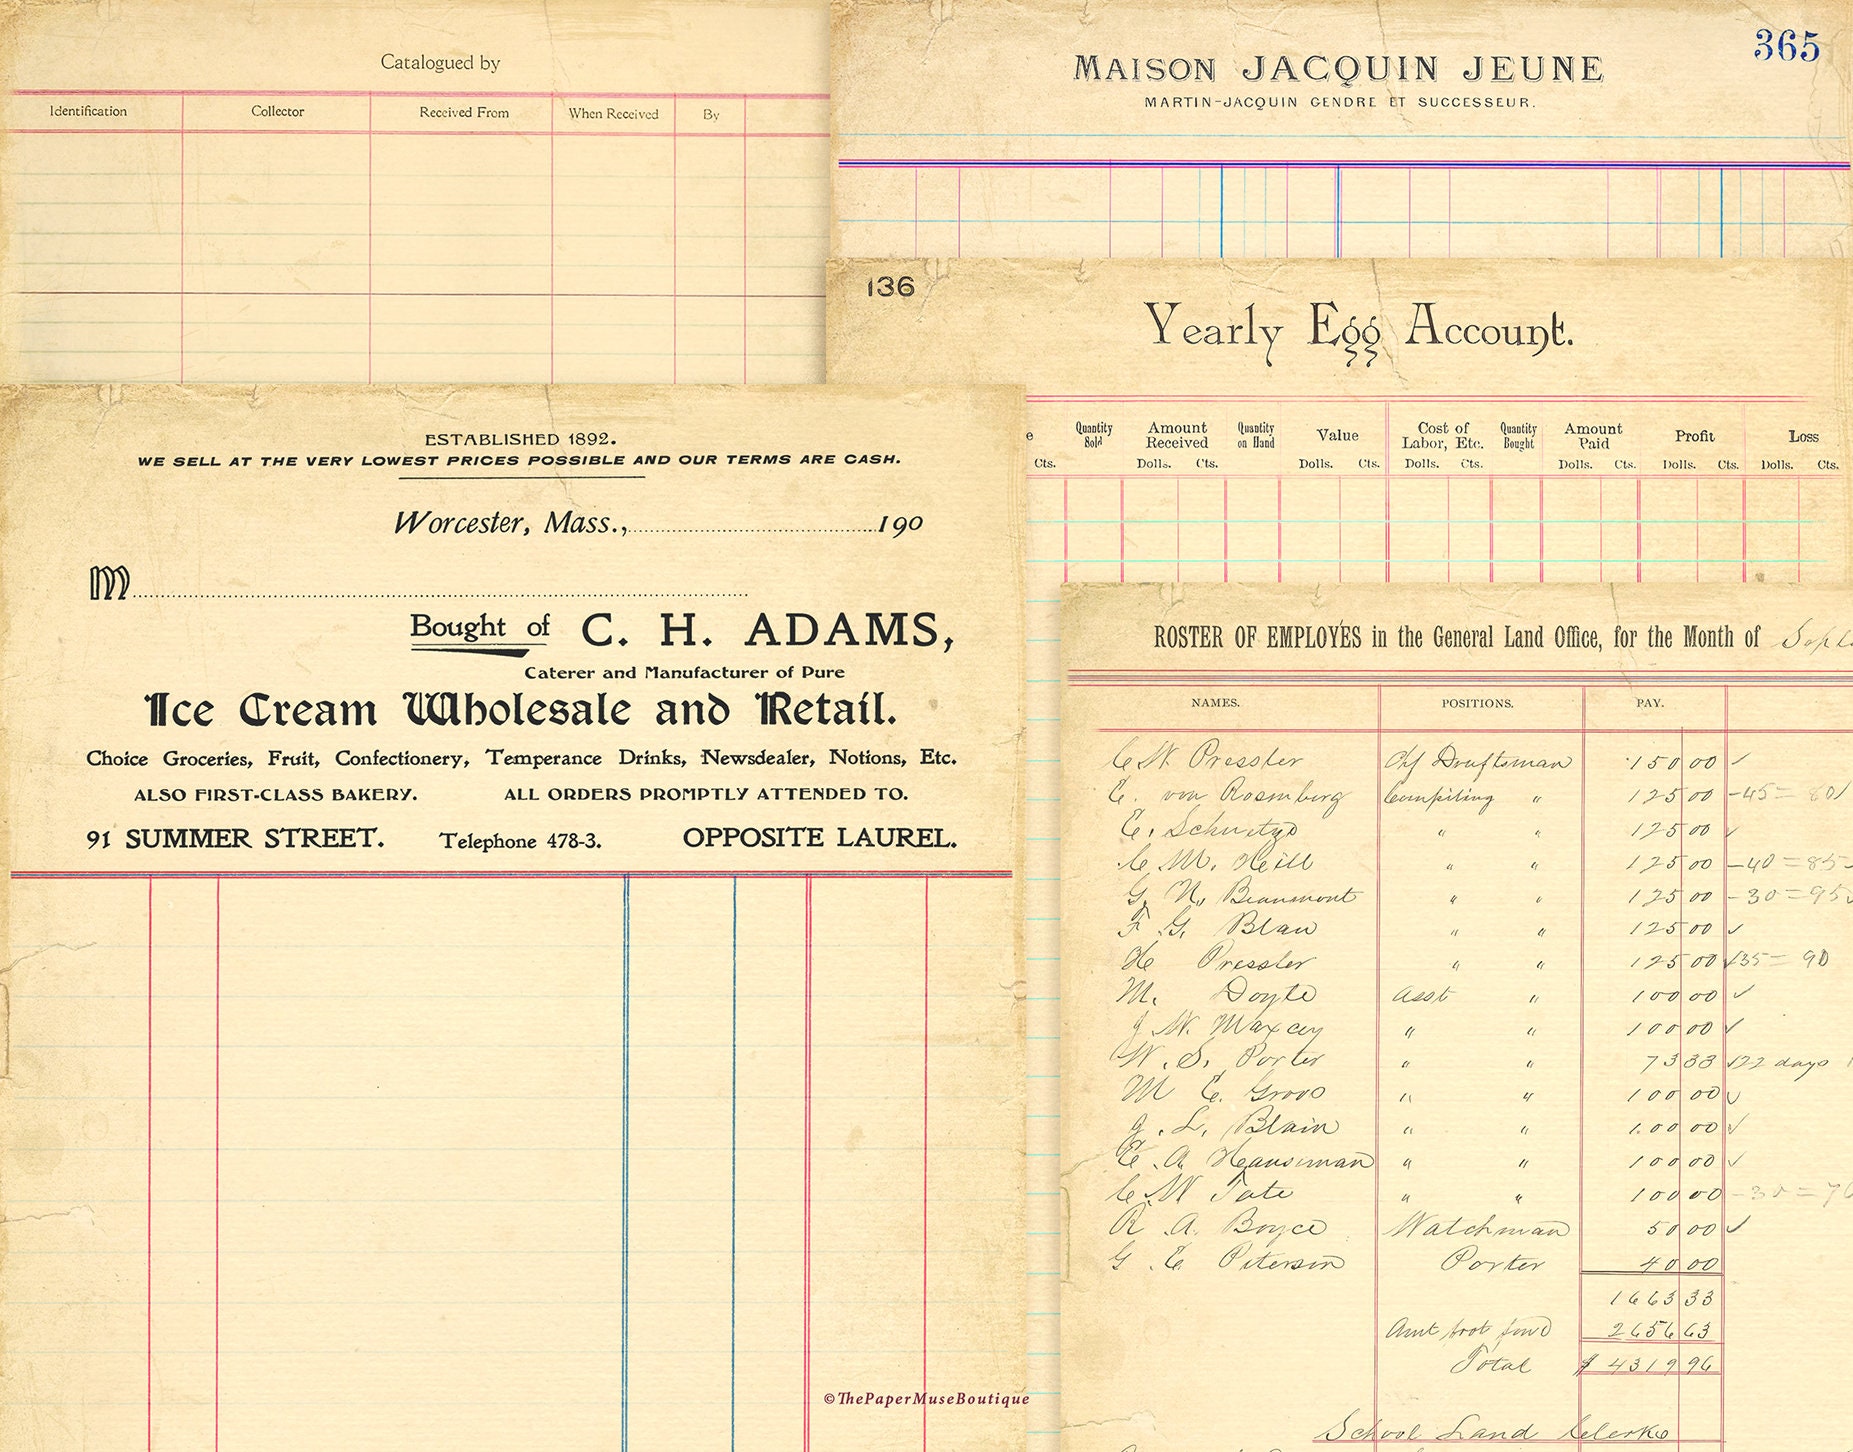 Catalogued by
Identification Collector Received From When Received By
365
MAISON JACQUIN JEUNE
MARTIN-JACQUIN GENDRE ET SUCCESSEUR.
136
Yearly Egg Account.
e Quantity Sold Amount Received Quantity on Hand Value Cost of Labor, Etc. Quantity Bought Amount Paid Profit Loss
Cts. Dolls. Cts. Dolls. Cts. Dolls. Cts. Dolls. Cts. Dolls. Cts. Dolls. Cts.
ESTABLISHED 1892.
WE SELL AT THE VERY LOWEST PRICES POSSIBLE AND OUR TERMS ARE CASH.
Worcester, Mass., 190
M
Bought of C. H. ADAMS,
Caterer and Manufacturer of Pure
Ice Cream Wholesale and Retail.
Choice Groceries, Fruit, Confectionery, Temperance Drinks, Newsdealer, Notions, Etc.
ALSO FIRST-CLASS BAKERY. ALL ORDERS PROMPTLY ATTENDED TO.
91 SUMMER STREET. Telephone 478-3. OPPOSITE LAUREL.
ROSTER OF EMPLOYÉS in the General Land Office, for the Month of Sept
NAMES. POSITIONS. PAY.
C W Pressler Chf Draftsman 150 00 ✓
E. von Rosenberg Compiling " 125 00 -45=
E. " " 125 00 ✓
C. M. " " 125 00 -40=85
G. N. Beaumont " " 125 00 -30=95
F. G. Blau " " 125 00 ✓
H Pressler " " 125 00 ✓35=90
M. Doyle Asst " 100 00 ✓
J. W. Maxcey " " 100 00 ✓
W. S. Porter " " 73 33 ✓22 days
M E. Groos " " 100 00 ✓
J. L. Blain " " 100 00 ✓
E. A Hausman " " 100 00 ✓
C. W Tate " " 100 00 -30=7
R A. Boyce Watchman 50 00 ✓
G. E. Peterson Porter 40 00
1663 33
Amt brot fwd 2656 63
Total $ 4319 96
School Land Clerks
©ThePaperMuseBoutique